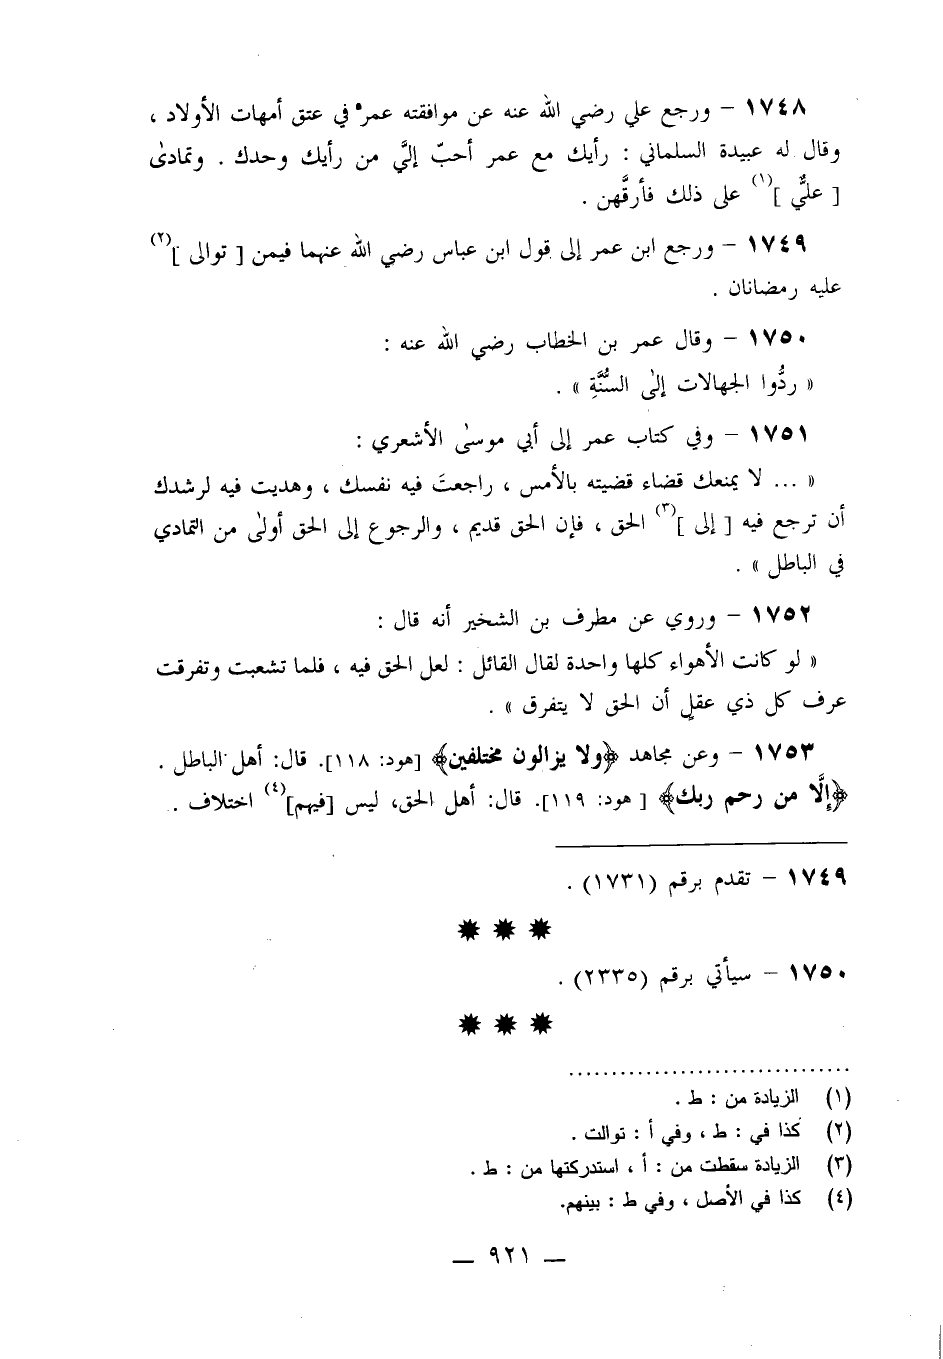 ١٧٤٨ – ورجع علي رضي الله عنه عن موافقته عمر في عتق أمهات الأولاد ،
وقال له عبيدة السلماني : رأيك مع عمر أحبّ إليَّ من رأيك وحدك . وتمادىٰ
[ عليٌّ ](١) على ذلك فأرقَّهن .
١٧٤٩ – ورجع ابن عمر إلى قول ابن عباس رضي الله عنهما فيمن [ توالى ](٢)
عليه رمضانان .
١٧٥٠ – وقال عمر بن الخطاب رضي الله عنه :
« ردُّوا الجهالات إلىٰ السُّنَّةِ » .
١٧٥١ – وفي كتاب عمر إلى أبي موسىٰ الأشعري :
« ... لا يمنعك قضاء قضيته بالأمس ، راجعتَ فيه نفسك ، وهديت فيه لرشدك
أن ترجع فيه [ إلى ](٣) الحق ، فإن الحق قديم ، والرجوع إلى الحق أولىٰ من التمادي
في الباطل » .
١٧٥٢ – وروي عن مطرف بن الشخير أنه قال :
« لو كانت الأهواء كلها واحدة لقال القائل : لعل الحق فيه ، فلما تشعبت وتفرقت
عرف كل ذي عقلٍ أن الحق لا يتفرق » .
١٧٥٣ – وعن مجاهد ﴿ولا يزالون مختلفين﴾ [هود: ١١٨]. قال: أهل الباطل .
﴿إلَّا من رحم ربك﴾ [ هود: ١١٩]. قال: أهل الحق، ليس [فيهم](٤) اختلاف .
١٧٤٩ – تقدم برقم (١٧٣١) .
✸ ✸ ✸
١٧٥٠ – سيأتي برقم (٢٣٣٥) .
✸ ✸ ✸
................................
(١) الزيادة من : ط .
(٢) كذا في : ط ، وفي أ : توالت .
(٣) الزيادة سقطت من : أ ، استدركتها من : ط .
(٤) كذا في الأصل ، وفي ط : بينهم.
— ٩٢١ —